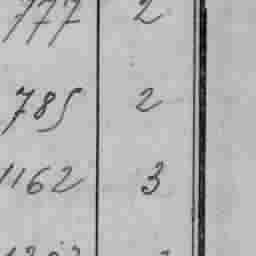 777 2
785 2
1162 3